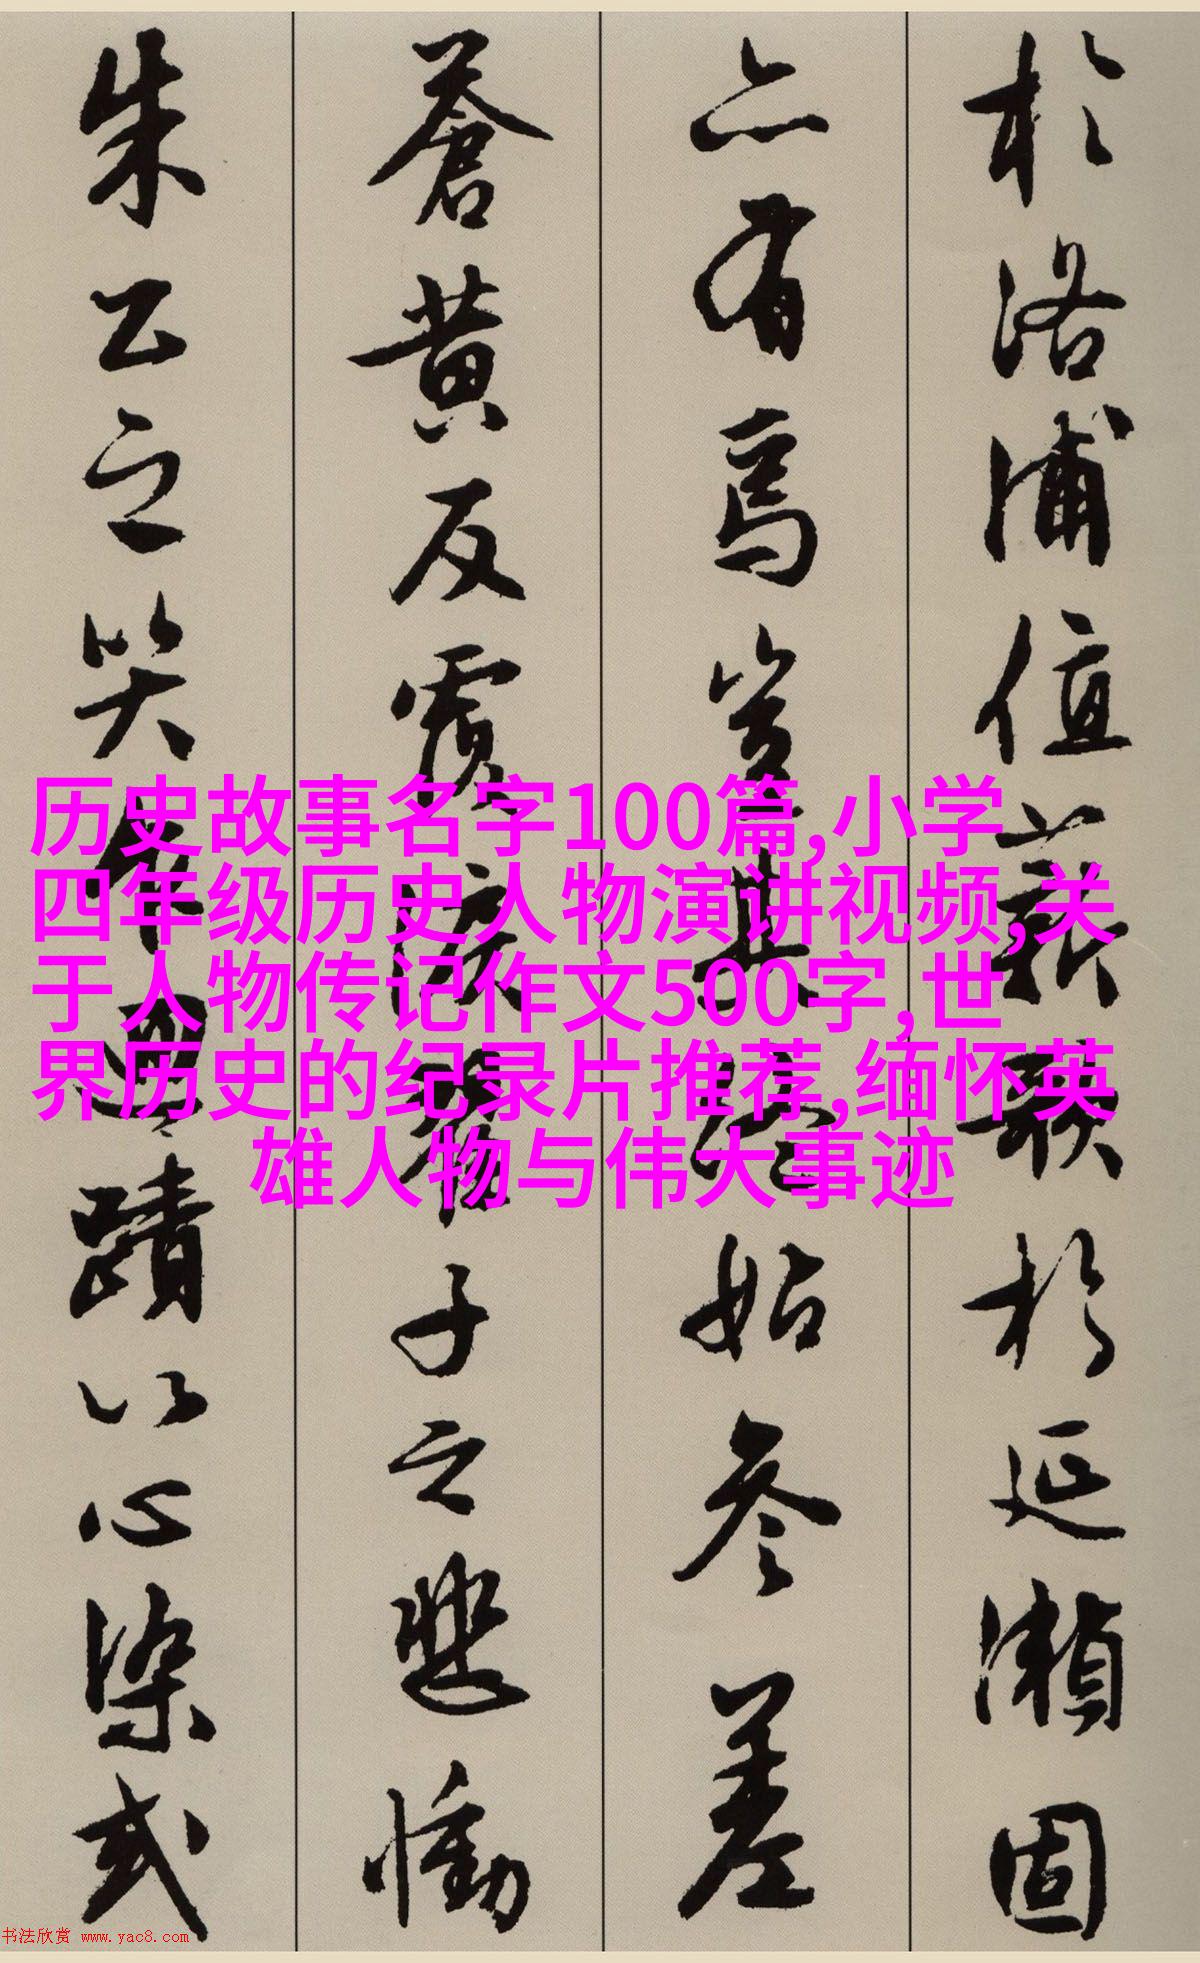 於洛浦值薪歌於延瀨固
亦有焉豈其終始參差
蒼黃反覆淚翟子之悲慟
朱公之哭乍迴蹟以心染或
历史故事名字100篇,小学
四年级历史人物演讲视频,关
于人物传记作文500字,世
界历史的纪录片推荐,缅怀英
雄人物与伟大事迹
书法欣赏 www.yac8.com